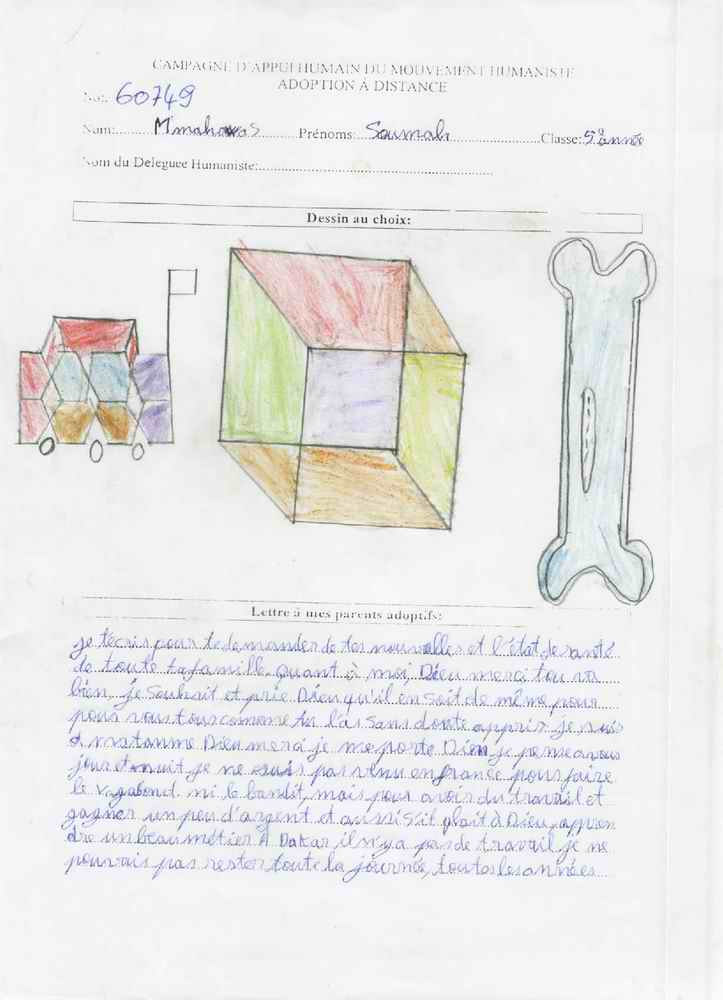 CAMPAGNE D'APPUI HUMAIN DU MOUVEMENT HUMANISTE
ADOPTION À DISTANCE
No: 60749
Nom: Prénoms: Soumah Classe: 5è année
Nom du Deleguee Humaniste:
Dessin au choix:
Lettre à mes parents adoptifs:
je t'écris pour te demander de tes nouvelles et l'état de santé
de toute ta famille quant à moi Dieu merci tou va
bien, je souhait et prie Dieu qu'il en soit de même pour
pour vous tous comme tu l'as sans doute appris je suis
Dieu merci je me porte Dien je pense a vous
jour et nuit je ne suis pas venu en france pour faire
le vagabond ni le bandit, mais pour avoir du travail et
gagner un peu d'argent et aussi s'il plait à Dieu, appren
dre un beau métier A Dakar, il n'y a pas de travail je ne
pouvais pas rester toute la journée, toutes les années